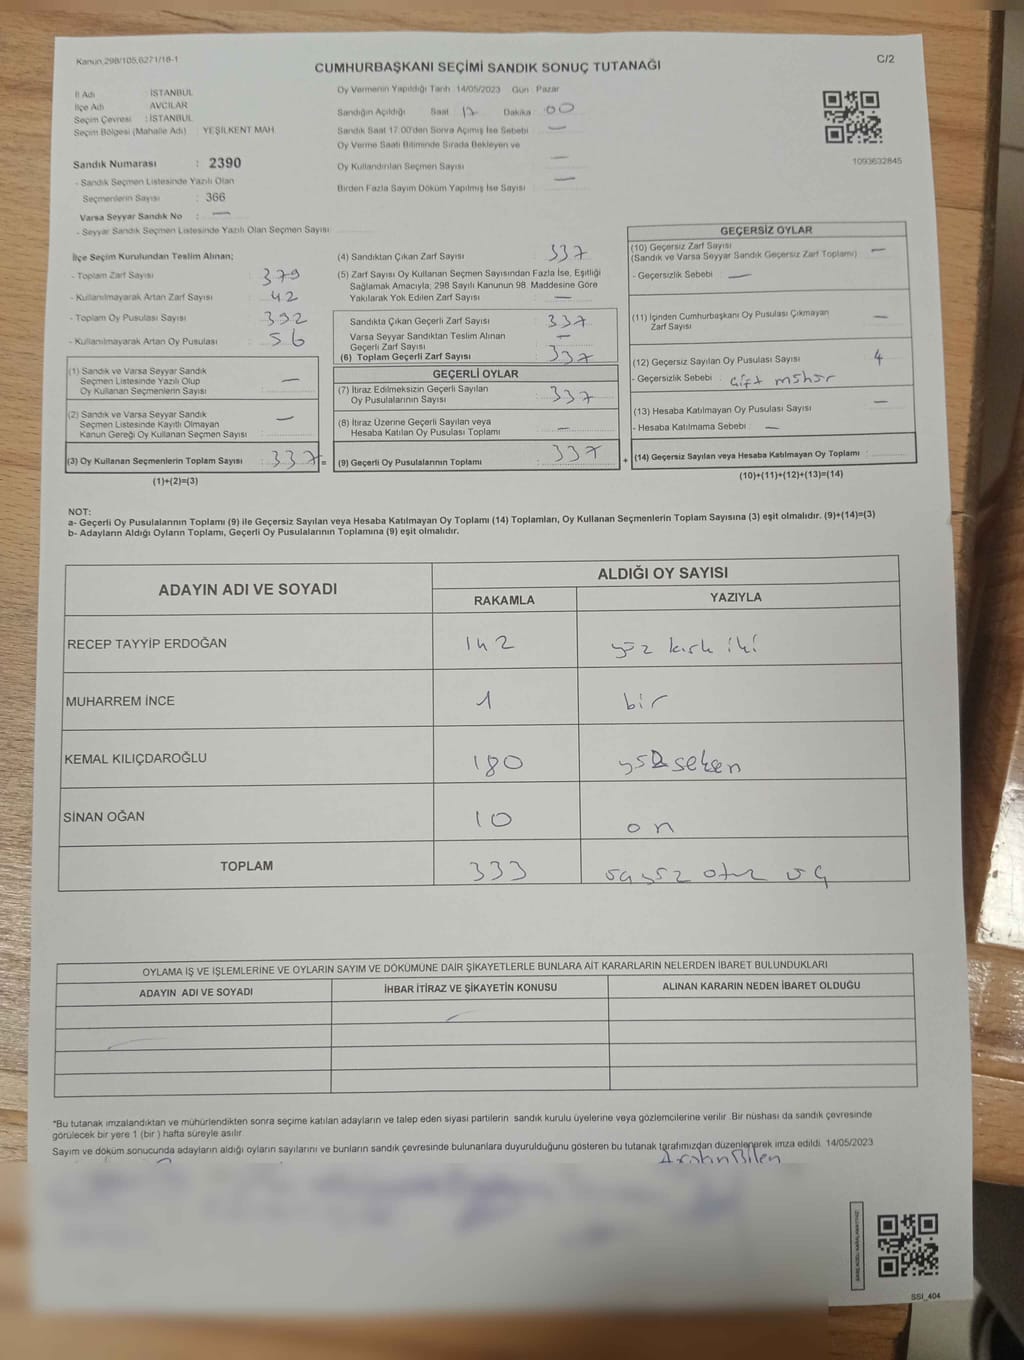 Kanun 298/105,6271/16-1
C/2
CUMHURBAŞKANI SEÇİMİ SANDIK SONUÇ TUTANAĞI
İl Adı : İSTANBUL
İlçe Adı : AVCILAR
Seçim Çevresi : İSTANBUL
Seçim Bölgesi (Mahalle Adı) : YEŞİLKENT MAH.
Sandık Numarası : 2390
- Sandık Seçmen Listesinde Yazılı Olan
Seçmenlerin Sayısı : 366
Varsa Seyyar Sandık No : —
- Seyyar Sandık Seçmen Listesinde Yazılı Olan Seçmen Sayısı:
Oy Vermenin Yapıldığı Tarih 14/05/2023 Gün : Pazar
Sandığın Açıldığı Saat Dakika 00
Sandık Saat 17.00'den Sonra Açılmış İse Sebebi —
Oy Verme Saati Bitiminde Sırada Bekleyen ve
Oy Kullandırılan Seçmen Sayısı —
Birden Fazla Sayım Döküm Yapılmış İse Sayısı —
1093632845
İlçe Seçim Kurulundan Teslim Alınan;
- Toplam Zarf Sayısı : 379
- Kullanılmayarak Artan Zarf Sayısı : 42
- Toplam Oy Pusulası Sayısı : 392
- Kullanılmayarak Artan Oy Pusulası : 56
(1) Sandık ve Varsa Seyyar Sandık
Seçmen Listesinde Yazılı Olup
Oy Kullanan Seçmenlerin Sayısı : —
(2) Sandık ve Varsa Seyyar Sandık
Seçmen Listesinde Kayıtlı Olmayan
Kanun Gereği Oy Kullanan Seçmen Sayısı : —
(3) Oy Kullanan Seçmenlerin Toplam Sayısı : 337 =
(1)+(2)=(3)
(4) Sandıktan Çıkan Zarf Sayısı : 337
(5) Zarf Sayısı Oy Kullanan Seçmen Sayısından Fazla İse, Eşitliği
Sağlamak Amacıyla; 298 Sayılı Kanunun 98. Maddesine Göre
Yakılarak Yok Edilen Zarf Sayısı : —
Sandıkta Çıkan Geçerli Zarf Sayısı : 337
Varsa Seyyar Sandıktan Teslim Alınan
Geçerli Zarf Sayısı : —
(6) Toplam Geçerli Zarf Sayısı : 337
GEÇERLİ OYLAR
(7) İtiraz Edilmeksizin Geçerli Sayılan
Oy Pusulalarının Sayısı : 337
(8) İtiraz Üzerine Geçerli Sayılan veya
Hesaba Katılan Oy Pusulası Toplamı : —
(9) Geçerli Oy Pusulalarının Toplamı : 337 +
GEÇERSİZ OYLAR
(10) Geçersiz Zarf Sayısı
(Sandık ve Varsa Seyyar Sandık Geçersiz Zarf Toplamı) : —
- Geçersizlik Sebebi : —
(11) İçinden Cumhurbaşkanı Oy Pusulası Çıkmayan
Zarf Sayısı : —
(12) Geçersiz Sayılan Oy Pusulası Sayısı : 4
- Geçersizlik Sebebi : Çift mühür
(13) Hesaba Katılmayan Oy Pusulası Sayısı : —
- Hesaba Katılmama Sebebi : —
(14) Geçersiz Sayılan veya Hesaba Katılmayan Oy Toplamı :
(10)+(11)+(12)+(13)=(14)
NOT:
a- Geçerli Oy Pusulalarının Toplamı (9) ile Geçersiz Sayılan veya Hesaba Katılmayan Oy Toplamı (14) Toplamları, Oy Kullanan Seçmenlerin Toplam Sayısına (3) eşit olmalıdır. (9)+(14)=(3)
b- Adayların Aldığı Oyların Toplamı, Geçerli Oy Pusulalarının Toplamına (9) eşit olmalıdır.
ADAYIN ADI VE SOYADI
ALDIĞI OY SAYISI
RAKAMLA YAZIYLA
RECEP TAYYİP ERDOĞAN 142 yüz kırk iki
MUHARREM İNCE 1 bir
KEMAL KILIÇDAROĞLU 180 yüz seksen
SİNAN OĞAN 10 on
TOPLAM 333 üç yüz otuz üç
OYLAMA İŞ VE İŞLEMLERİNE VE OYLARIN SAYIM VE DÖKÜMÜNE DAİR ŞİKAYETLERLE BUNLARA AİT KARARLARIN NELERDEN İBARET BULUNDUKLARI
ADAYIN ADI VE SOYADI İHBAR İTİRAZ VE ŞİKAYETİN KONUSU ALINAN KARARIN NEDEN İBARET OLDUĞU
*Bu tutanak imzalandıktan ve mühürlendikten sonra seçime katılan adayların ve talep eden siyasi partilerin sandık kurulu üyelerine veya gözlemcilerine verilir. Bir nüshası da sandık çevresinde
görülecek bir yere 1 (bir) hafta süreyle asılır.
Sayım ve döküm sonucunda adayların aldığı oyların sayılarını ve bunların sandık çevresinde bulunanlara duyurulduğunu gösteren bu tutanak tarafımızdan düzenlenerek imza edildi. 14/05/2023
SSI_404